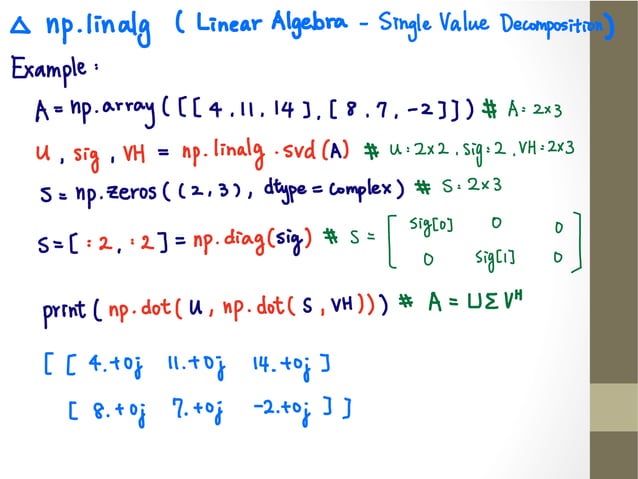 △ np.linalg ( Linear Algebra - Single Value Decomposition)
Example :
A = np.array ( [ [ 4 , 11 , 14 ] , [ 8 , 7 , -2 ] ] ) # A: 2x3
U , sig , VH = np.linalg.svd (A) # U: 2x2 , sig: 2 , VH: 2x3
S = np.zeros ( (2, 3) , dtype = complex ) # S: 2x3
S = [ : 2 , : 2 ] = np.diag (sig) # S = [ sig[0] 0 0
0 sig[1] 0 ]
print ( np.dot ( U , np.dot ( S , VH ))) # A = UΣV^H
[ [ 4.+0j 11.+0j 14.+0j ]
[ 8.+0j 7.+0j -2.+0j ] ]